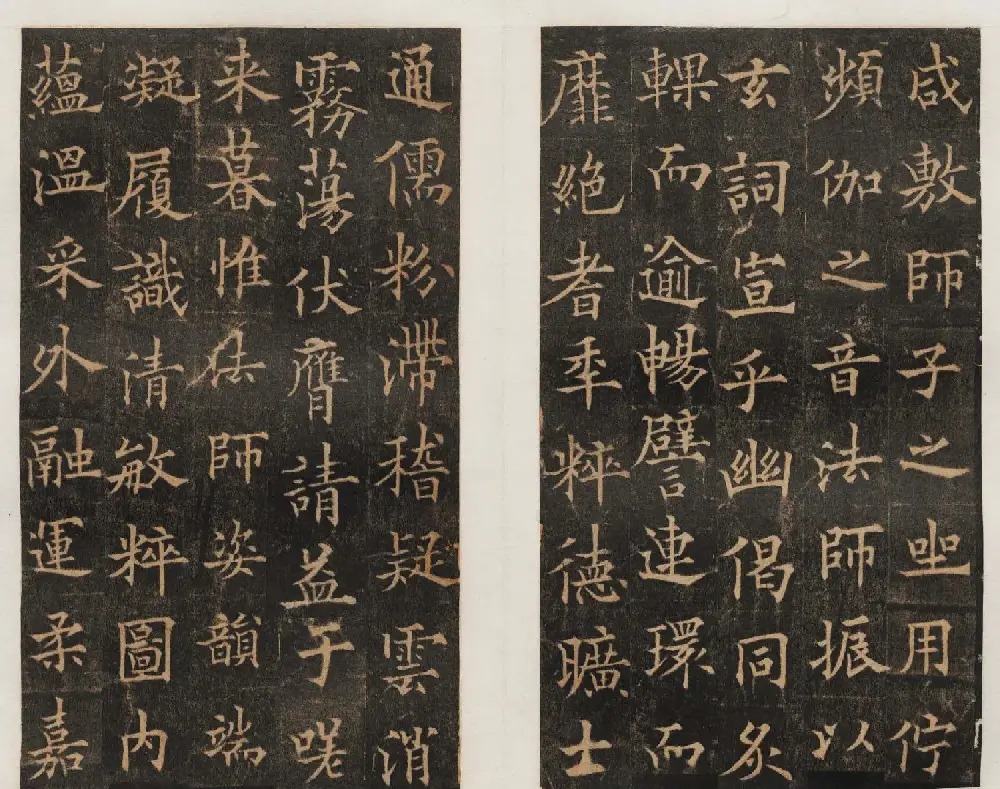 咸敷師子之㘴用佇
頻伽之音法師振以
玄詞宣乎幽偈同炙
輠而逾暢譬連環而
靡絕耆秊粹德曠士
通儒粉滯稽疑雲消
霧蕩伏膺請益于嗟
来暮惟法師姿韻端
凝履識清敏粹圖內
蘊溫采外融運柔嘉